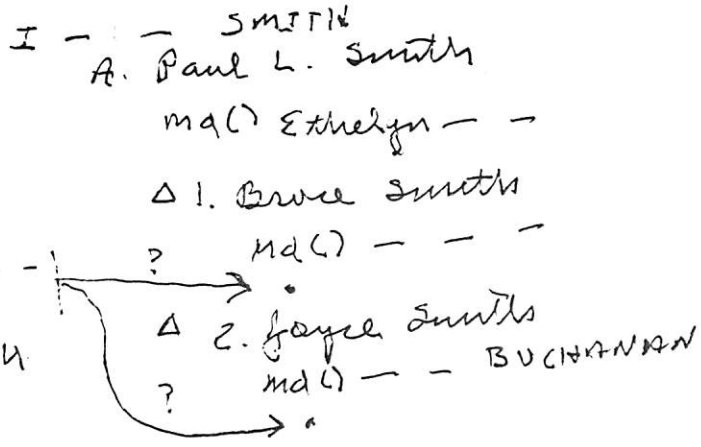 I - - SMITH
A. Paul L. Smith
md () Ethelyn - -
Δ 1. Bruce Smith
md () - - -
?
Δ 2. Joyce Smith
md () - - BUCHANAN
?